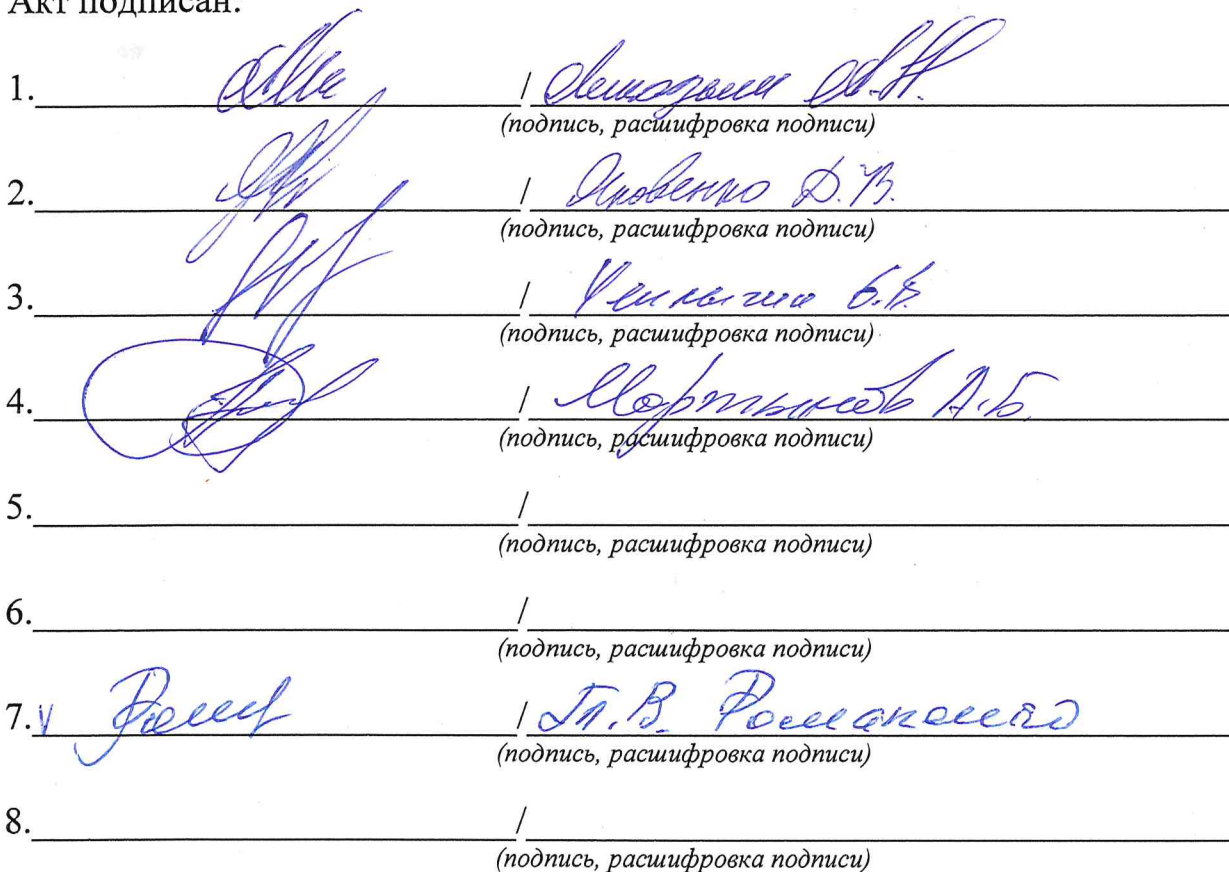 Акт подписан:
1. /
(подпись, расшифровка подписи)
2. / Яковенко Д.В.
(подпись, расшифровка подписи)
3. /
(подпись, расшифровка подписи)
4. / Мартынов А.Б.
(подпись, расшифровка подписи)
5. /
(подпись, расшифровка подписи)
6. /
(подпись, расшифровка подписи)
7. / В. Романенко
(подпись, расшифровка подписи)
8. /
(подпись, расшифровка подписи)